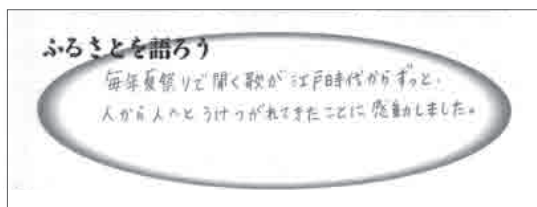 ふるさとを語ろう
毎年夏祭りで聞く歌が江戸時代からずっと、
人から人へとうけつがれてきたことに感動しました。